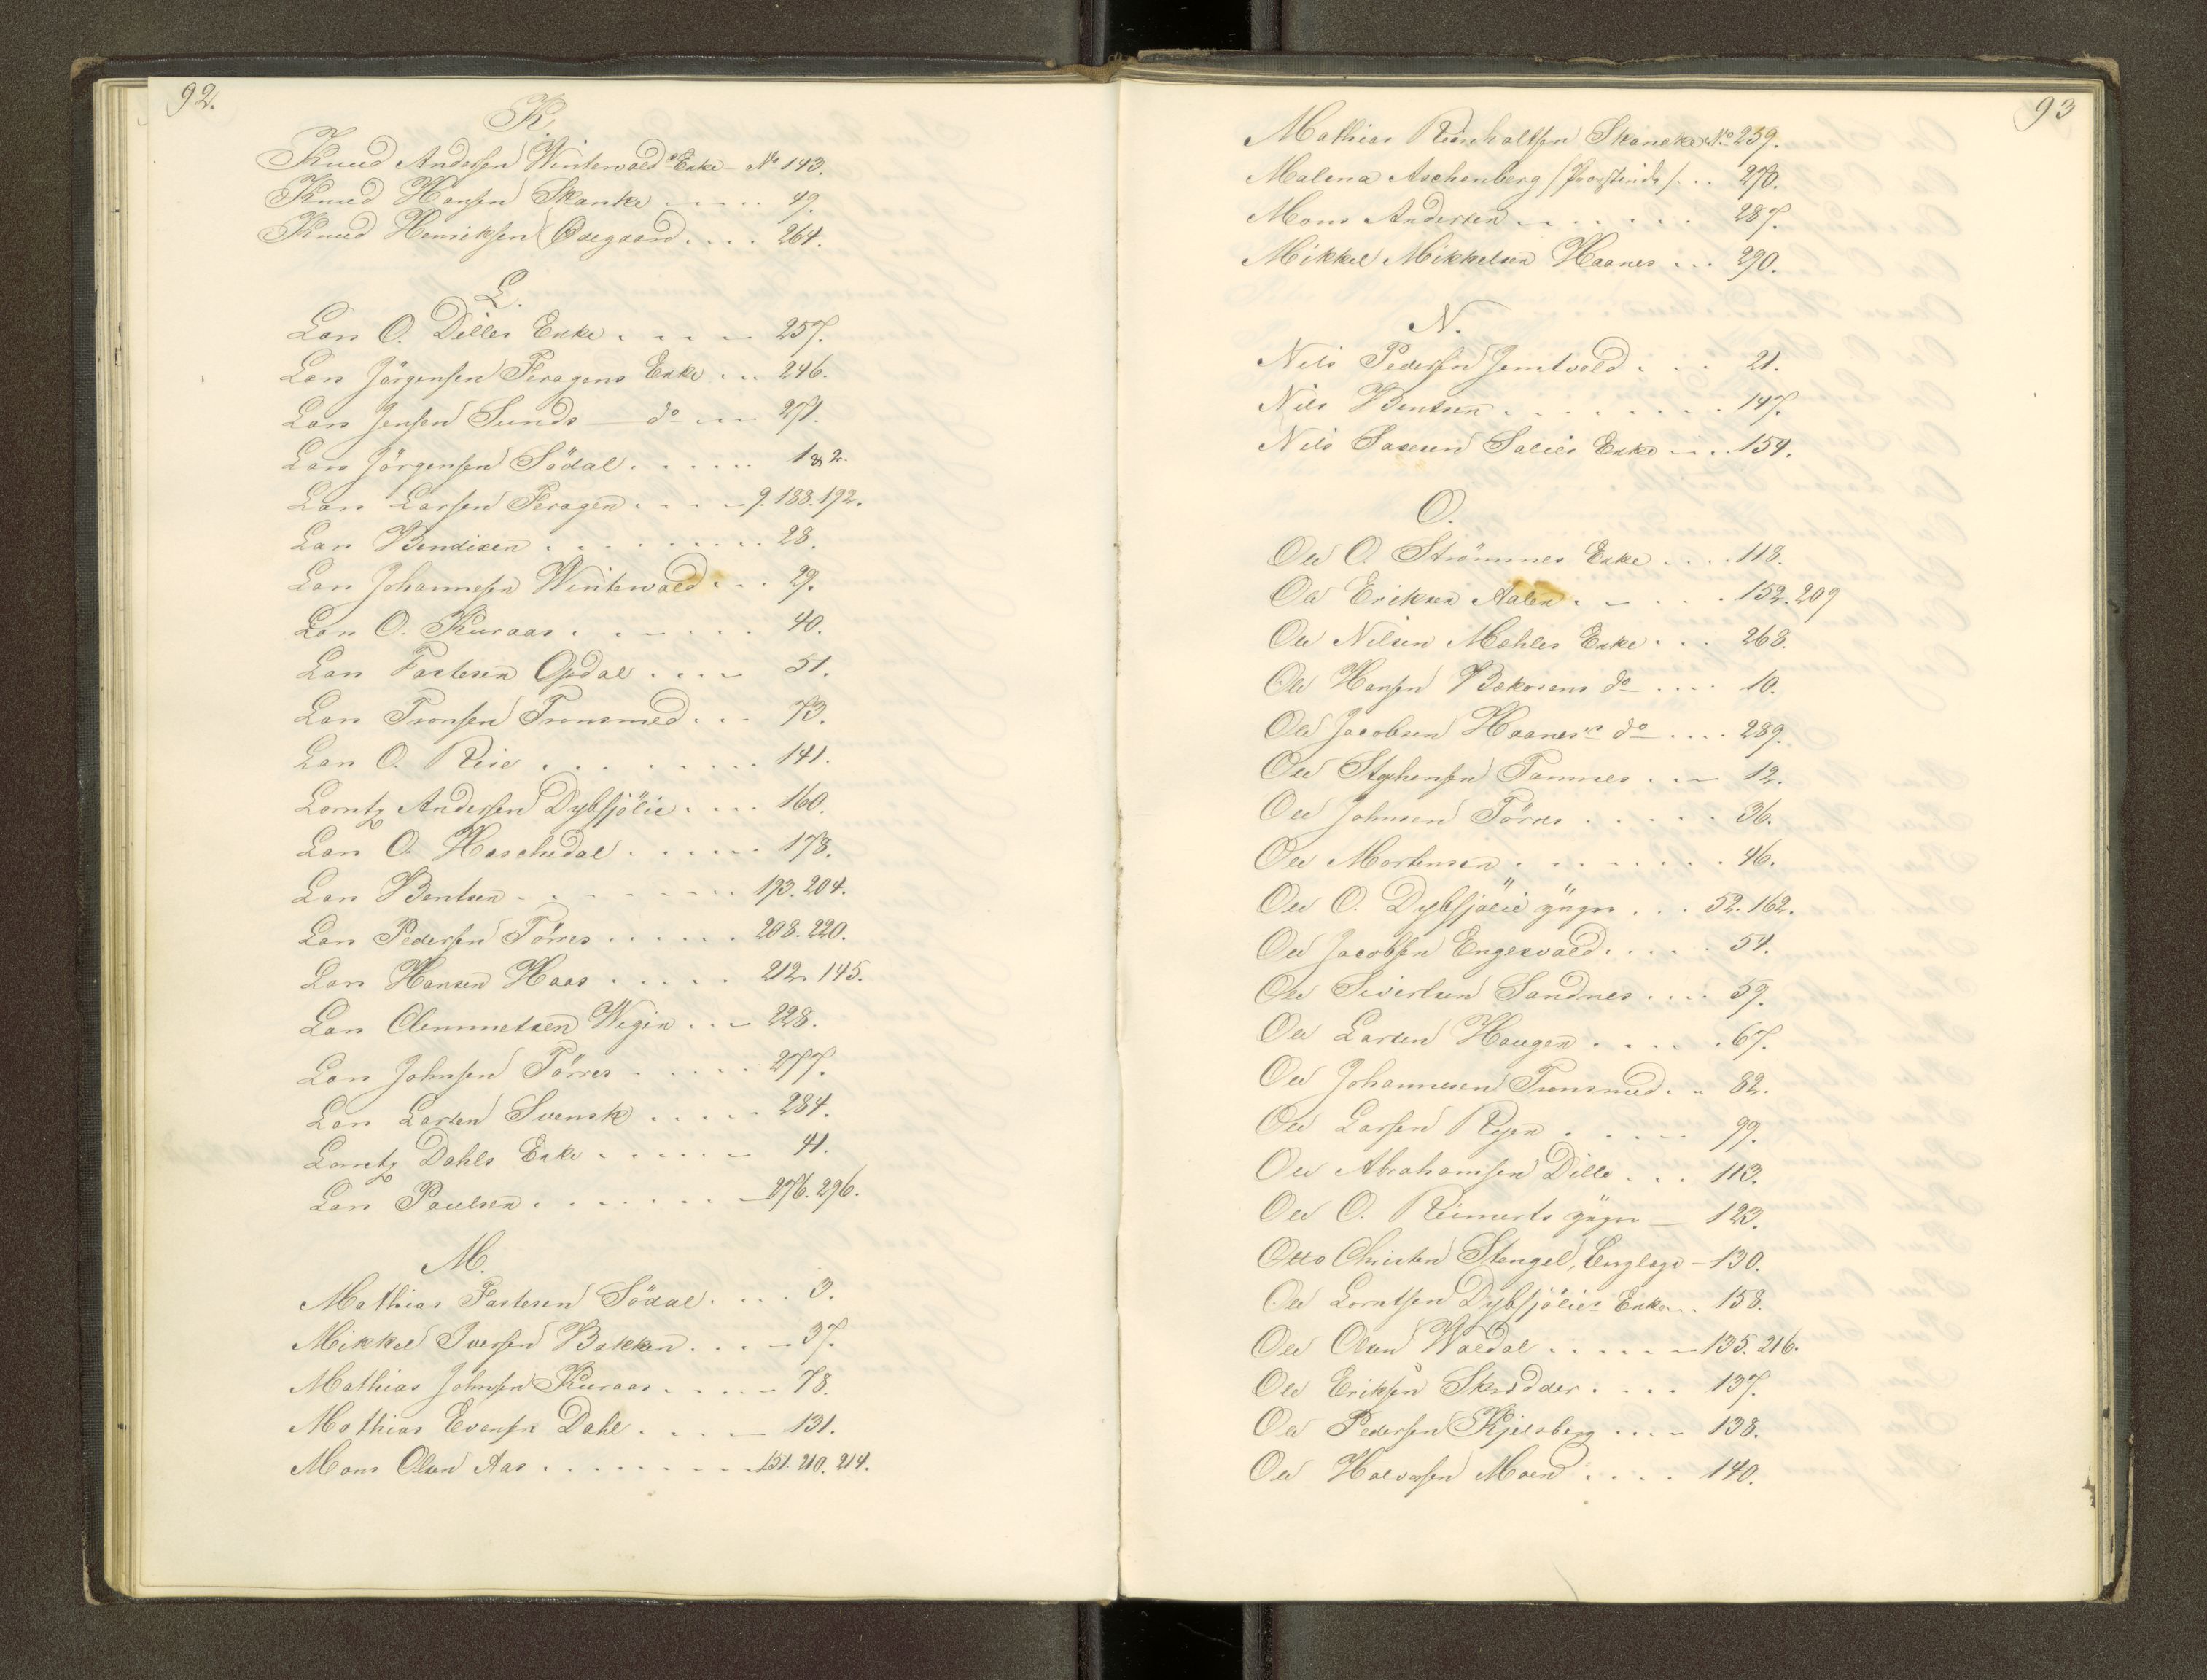 92.
K.
Knud Andersen Wintervold's Enke - No 143.
Knud Hansen Skanke - - - . . 49.
Knud Henriksen Ødegaard . . . . 264.
L.
Lars O. Dilles Enke . . . . - 257.
Lars Jörgensen Feragens Enke . . . 246.
Lars Jensen Sunds - do - . . . 271.
Lars Jörgensen Södal . . . . . . 1 & 2.
Lars Larsen Feragen . . . . - 9. 188. 192.
Lars Bendixen . . . . . . . . . 28.
Lars Johannesen Wintervold . . . 29.
Lars O. Kuraas . . . . . . . 40.
Lars Fastesen Opdal . . . . - 51.
Lars Tronsen Tronsmed . . - 73.
Lars O. Rise . . . . . . . . 141.
Lorntz Andersen Dybsjölie . . . . 160.
Lars O. Haschedal . . . . . . 178.
Lars Bentsen . - - - - - . . . 193. 204.
Lars Pedersen Törres . . . . . . 208. 220.
Lars Hansen Haas . . . . . 212. 145.
Lars Clemmetsen Wigen . . - 228.
Lars Johnsen Törres . . . . . . 277.
Lars Larsen Svensk . . . . . 284.
Lorntz Dahls Enke . . . . . - 41.
Lars Paulsen . . . . . . . - 276. 296.
M.
Mathias Fastesen Södal . . . . 3.
Mikkel Iversen Bakken . . . - 37.
Mathias Johnsen Kuraas . . . . - 78.
Mathias Evensen Dahl . . . . - 131.
Mons Olsen Aas . . . . . . . . - 151. 210. 214.
93
Mathias Reinholtsen Skancke No 259.
Malena Aschenberg / . . . 270.
Mons Andersen - . . . . . . 287.
Mikkel Mikkelsen Haanes . . . 290.
N.
Nils Pedersen Jemtvold . . . 21.
Nils Bentsen . . . . . . . . 147.
Nils Enke - . . 154.
O.
Ole O. Strömmes Enke . . . . 118.
Ole Eriksen Aalen . - . . . . 152. 209
Ole Nilsen Mæhles Enke . . . 268.
Ole Hansen Bekosens do - . . . . 10.
Ole Jacobsen Haanes's do - . . . . 289.
Ole Stephensen Tamnes . . - 12.
Ole Johnsen Törres . . . . . . 36.
Ole Mortensen . . . . . . . . 46.
Ole O. Dybsjölie yngre . . . 52. 162.
Ole Jacobsen Engesvold . . . . . 54.
Ole Sivertsen Sandnes . . . . 59.
Ole Larsen Haugen . . . . . . 67.
Ole Johannesen Tronsmed . . 82.
Ole Larsen Rejen . . . . - - 99.
Ole Abrahamsen Dille . . . 113.
Ole O. Reinerts yngre - 123.
Otto Christen Stengel, Berglege - 130.
Ole Lorntsen Dybsjölies Enke - . . 158.
Ole Olsen Woldal . . . . . - 135. 216.
Ole Eriksen Skrædder . . . . 137.
Ole Pedersen Kjelsberg . . . - 138.
Ole Halvorsen Moen . . . . 140.